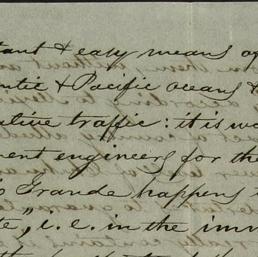 tant & easy means of
ntic & Pacific oceans &
ative traffic: it is wo
ment engineers for the
Grande happens
te", i.e. in the imm